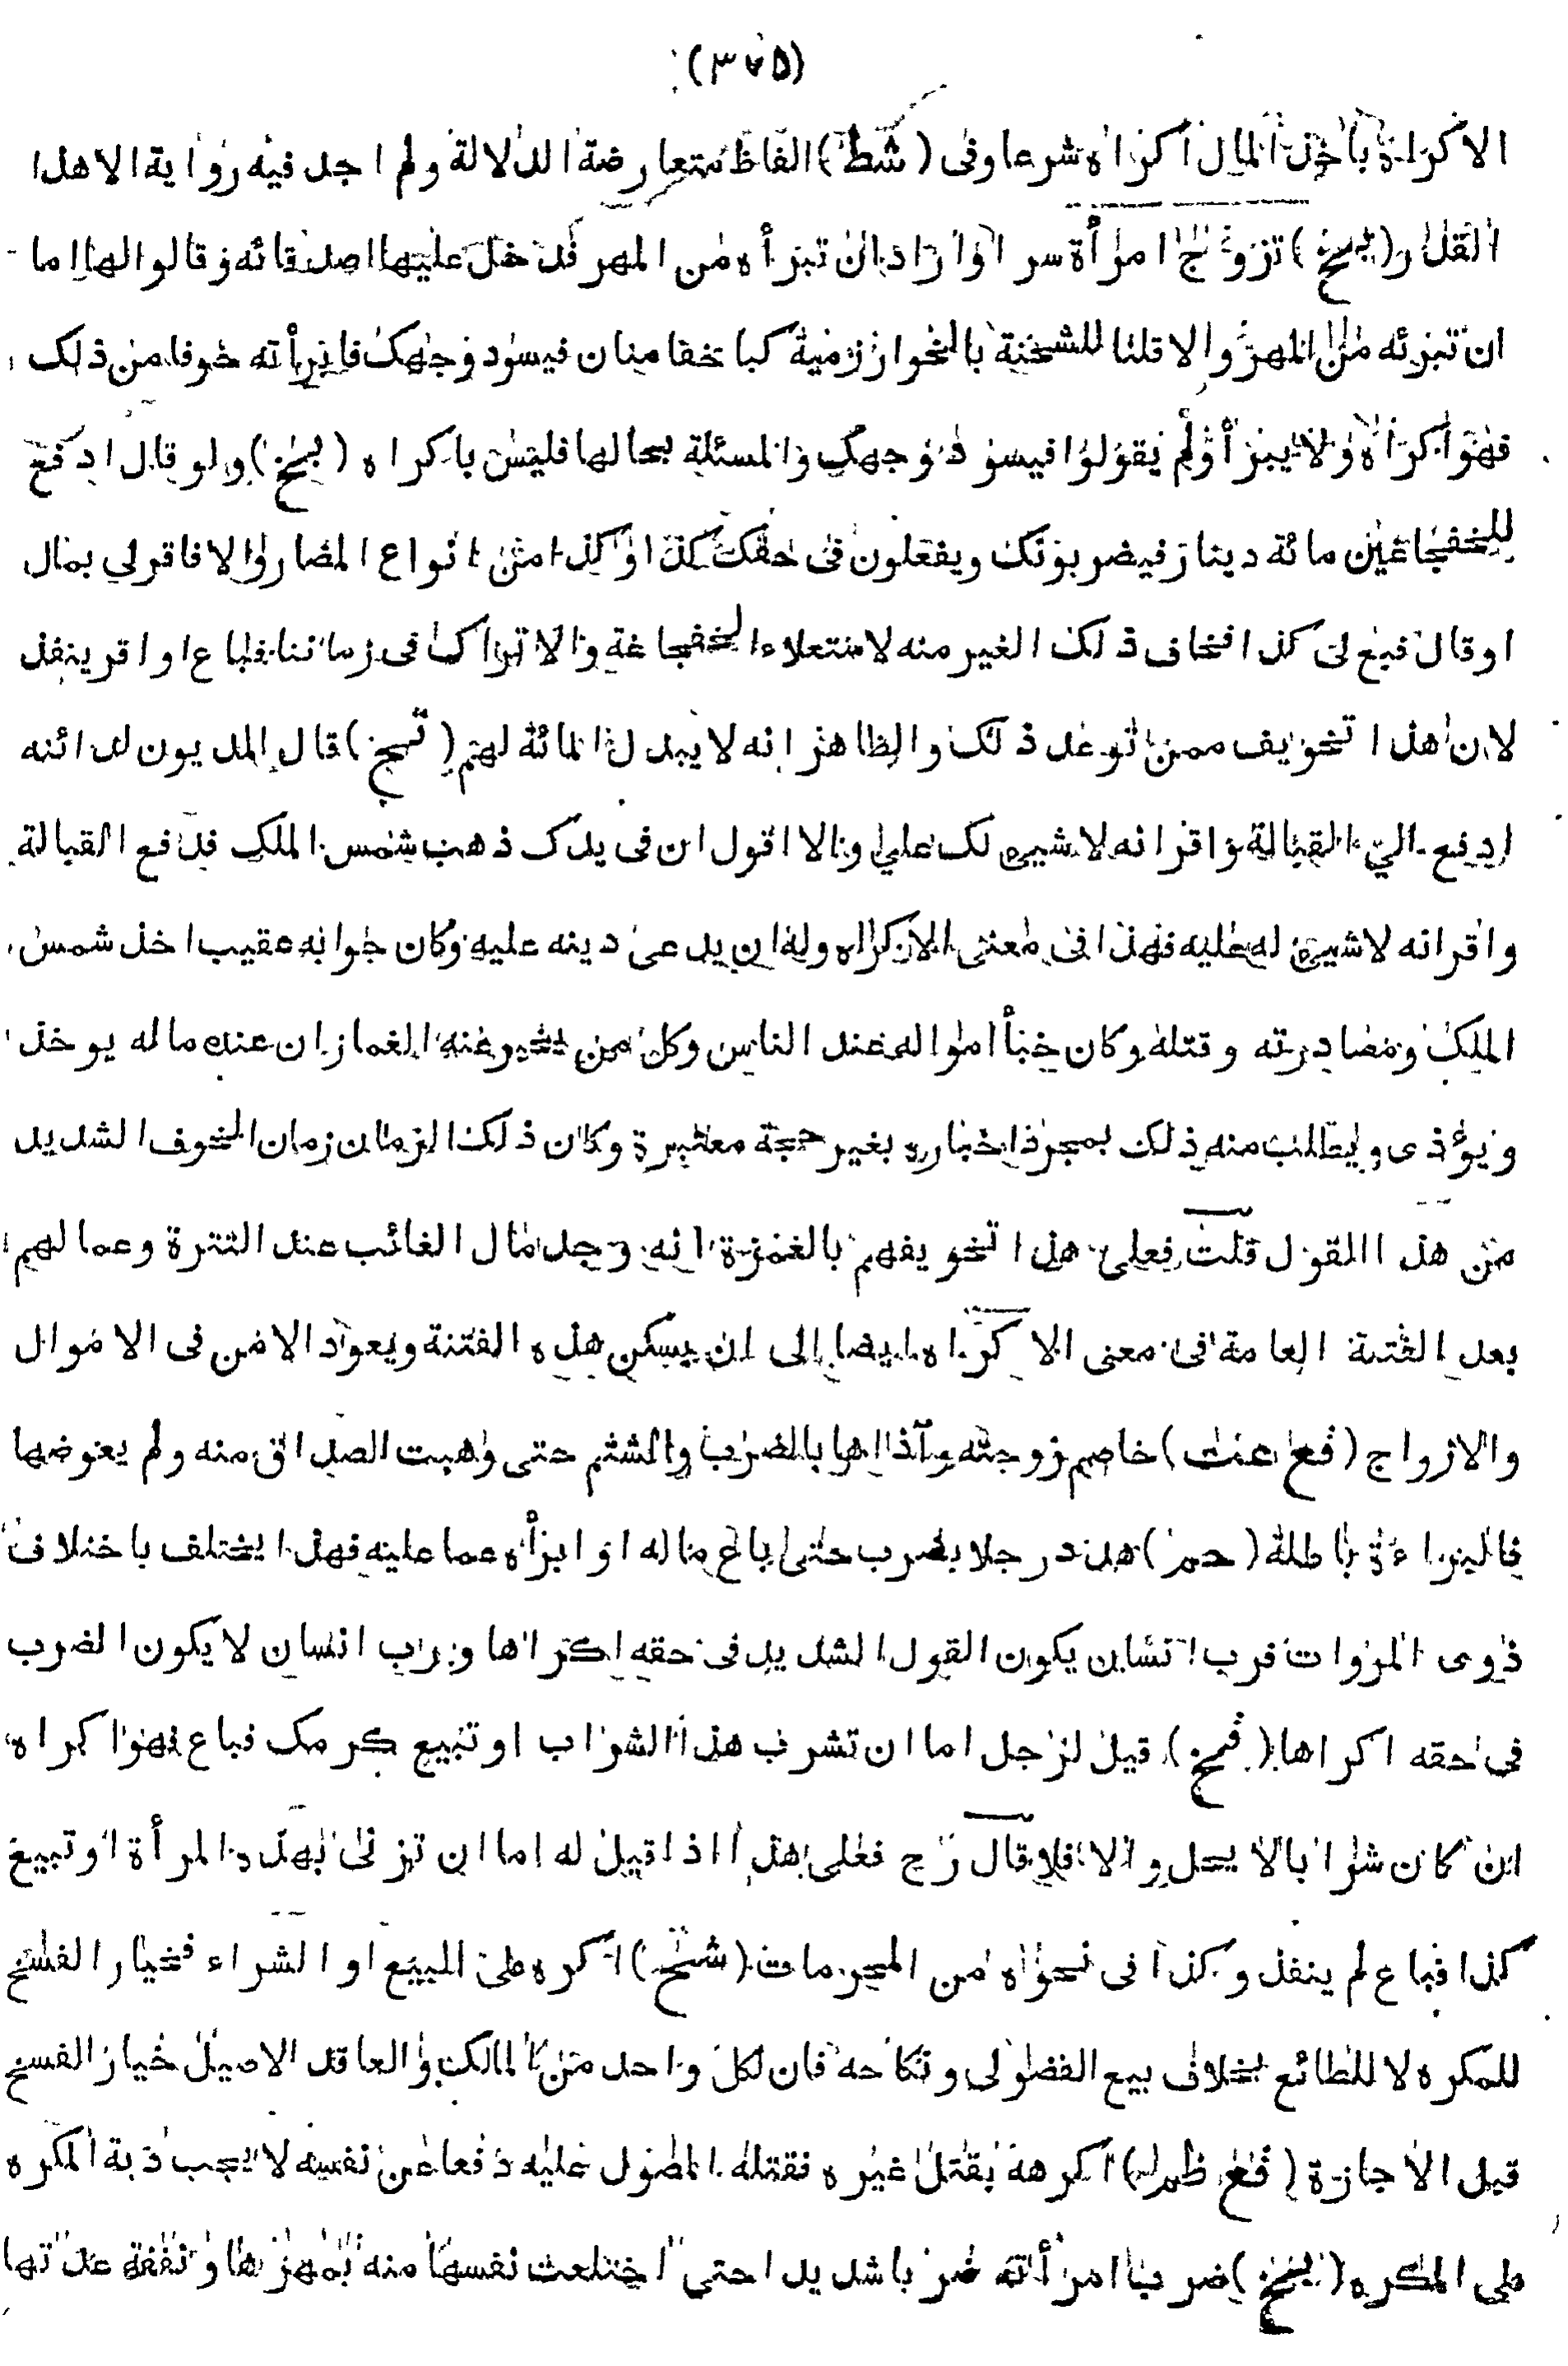 (٣٧٥)
الاكراه باخذ المال اكراه شرعا وفى (شط) الفاظ متعارضة الدلالة ولم اجد فيه رواية الا هذا
القدر (يمخ) تزوج امرأة سرا واراد ان تبرأه من المهر فدخل عليها اصدقائه وقالوا لها اما
ان تبرئه من المهر والا قلنا للشحنة بالخوارزمية كبا خفا منان فيسود وجهك فابرأته خوفا من ذلك
فهو اكراه ولا يبرأ ولم يقولوا فيسود وجهك والمسئلة بحالها فليس باكراه (بمخ) ولو قال ادفع
للخفجاغين مائة دينار فيضربونك ويفعلون فى حقك كذا وكذا من انواع المضار والا فاقر لي بمال
او قال فبع لى كذا فخاف ذلك الغير منه لاستعلاء الخفجاغة والاتراك فى زماننا فباع او اقر ينفذ
لان هذا تخويف ممن توعد ذلك والظاهر انه لا يبذل المائة لهم (تمخ) قال المديون لدائنه
ادفع الي القبالة واقر انه لا شيئ لك علي والا اقول ان فى يدك ذهب شمس الملك فدفع القبالة
واقر انه لا شيئ له عليه فهذا فى معنى الاكراه وله ان يدعى دينه عليه وكان جوابه عقيب اخذ شمس
الملك ومصادرته وقتله وكان خبأ امواله عند الناس وكل من يخبر عنه الغماز ان عنده ماله يوخذ
ويؤذى ويطالب منه ذلك بمجرد اخباره بغير حجة معتبرة وكان ذلك الزمان زمان الخوف الشديد
من هذا القول قلت فعلى هذا تخويفهم بالغمزة انه وجد مال الغائب عند التترة وعمالهم
بعد الفتنة العامة فى معنى الاكراه ايضا الى ان يسكن هذه الفتنة ويعود الامن فى الاموال
والازواج (فع عت) خاصم زوجته وآذاها بالضرب والشتم حتى وهبت الصداق منه ولم يعوضها
فالبراءة باطلة (حم) هدد رجلا بضرب حتى باع ماله او ابرأه عما عليه فهذا يختلف باختلاف
ذوى المروات فرب انسان يكون القول الشديد فى حقه اكراها ورب انسان لا يكون الضرب
فى حقه اكراها (فمخ) قيل لرجل اما ان تشرب هذا الشراب او تبيع كرمك فباع فهو اكراه
ان كان شرابا لا يحل والا فلا قال رح فعلى هذا اذا قيل له اما ان تزنى بهذه المرأة او تبيع
كذا فباع لم ينفذ وكذا فى نحوه من المحرمات (شخ) اكره على البيع او الشراء فخيار الفسخ
للمكره لا للطائع بخلاف بيع الفضولى ونكاحه فان لكل واحد من المالك والعاقد الاصيل خيار الفسخ
قبل الاجازة (فع ظم) اكرهه بقتل غيره فقتله المصول عليه دفعا عن نفسه لا يجب دية المكره
على المكره (بمخ) ضرب امرأته ضربا شديدا حتى اختلعت نفسها منه بمهرها ونفقة عدتها